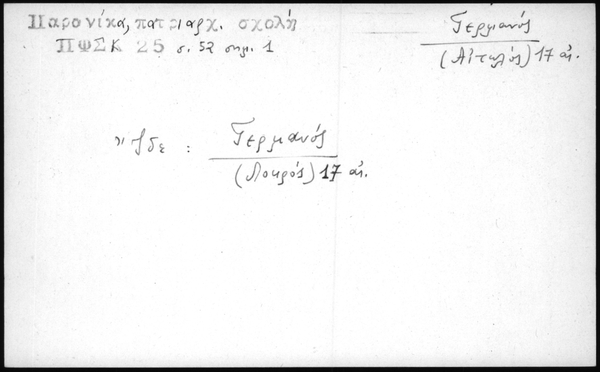 Παρονίκα, πατριαρχ. σχολή
ΠΦΣΚ 25 σ. 52 σημ. 1
Γερμανός
(Αἰτωλός) 17 αἰ.
Ἴδε : Γερμανός
(Λοκρός) 17 αἰ.